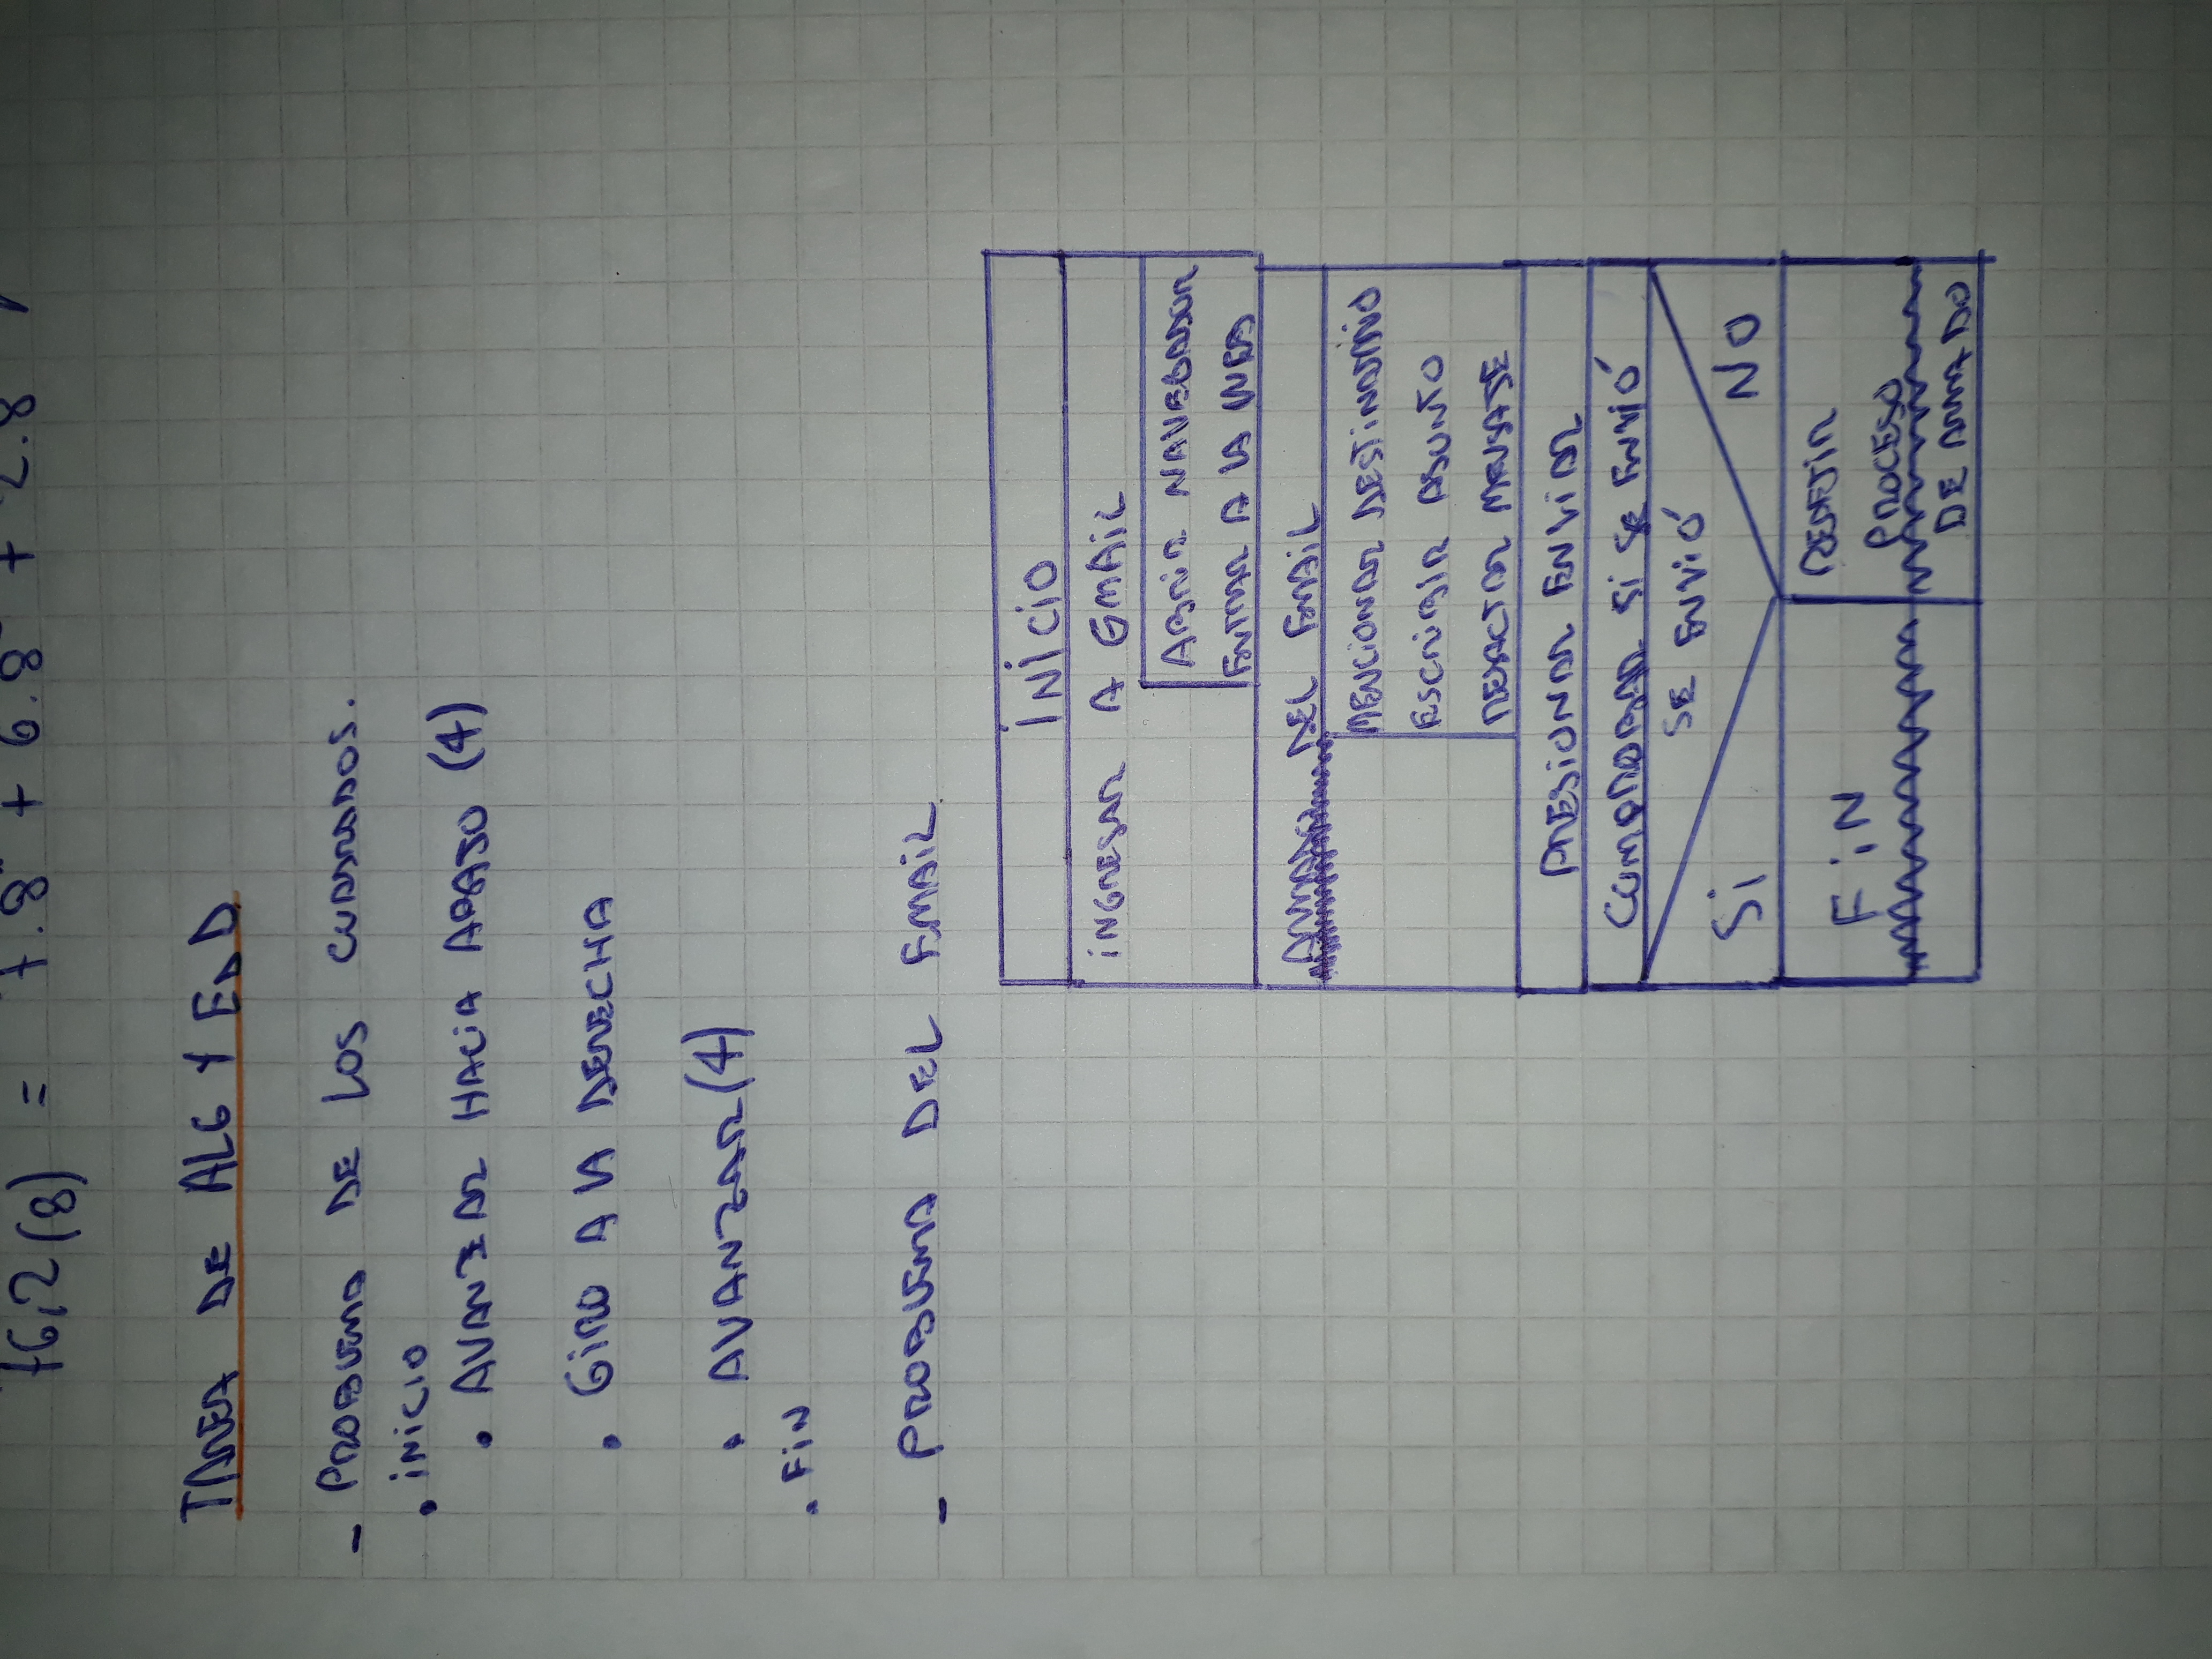 76,2(8) = 7.8 + 6.8 + 2.8
TAREA DE ALG Y EDD
- PROBLEMA DE LOS CUADRADOS.
. INICIO
. AVANZAR HACIA ABAJO (4)
. GIRO A LA DERECHA
. AVANZAR (4)
. FIN
- PROBLEMA DEL EMAIL
INICIO
INGRESAR A GMAIL
ABRIR NAVEGADOR
ENTRAR A LA WEB
ARMADO DEL EMAIL
MENCIONAR DESTINATARIO
ESCRIBIR ASUNTO
REDACTAR MENSAJE
PRESIONAR ENVIAR
COMPROBAR SI SE ENVIÓ
SE ENVIÓ
SI NO
FIN
REPETIR
PROCESO
DE ARMADO